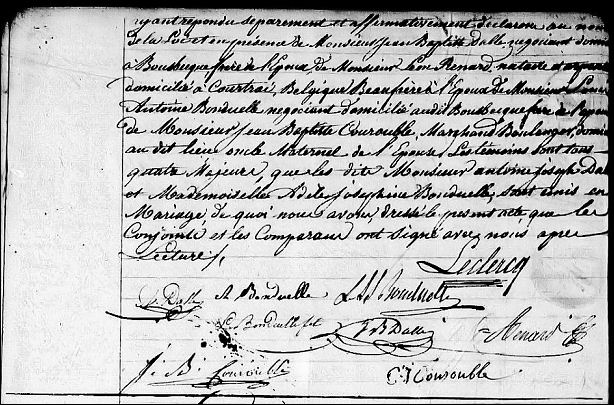 ayant répondu séparement et affirmativement déclarons au nom
de la Loi et en présence de Monsieur Jean Baptiste Dalle négociant domi
à Bousbecque frère de l'Epoux, de Monsieur Léon Renard, notaire
domicilié à Courtrai, Belgique Beaufrère de l'Epoux de Monsieur
Antoine Bonduelle négociant domicilié audit Bousbecque de l'épouse
de Monsieur Jean Baptiste Courouble, Marchand Boulanger, domi
au dit lieu oncle Maternel de l'Epouse, Les témoins sont tous
quatre Majeurs, que les dits Monsieur antoine joseph Dal
et Mademoiselle Adèle josephine Bonduelle, sont unis en
Mariage, de quoi nous avons dressé le présent acte, que les
Conjoints et les Comparans ont Signé avec nous après
Lecture,
Leclercq
Dalle A Bonduelle Bonduelle
Bonduelle J B Dalle Renard
J. B. Courouble C J Courouble